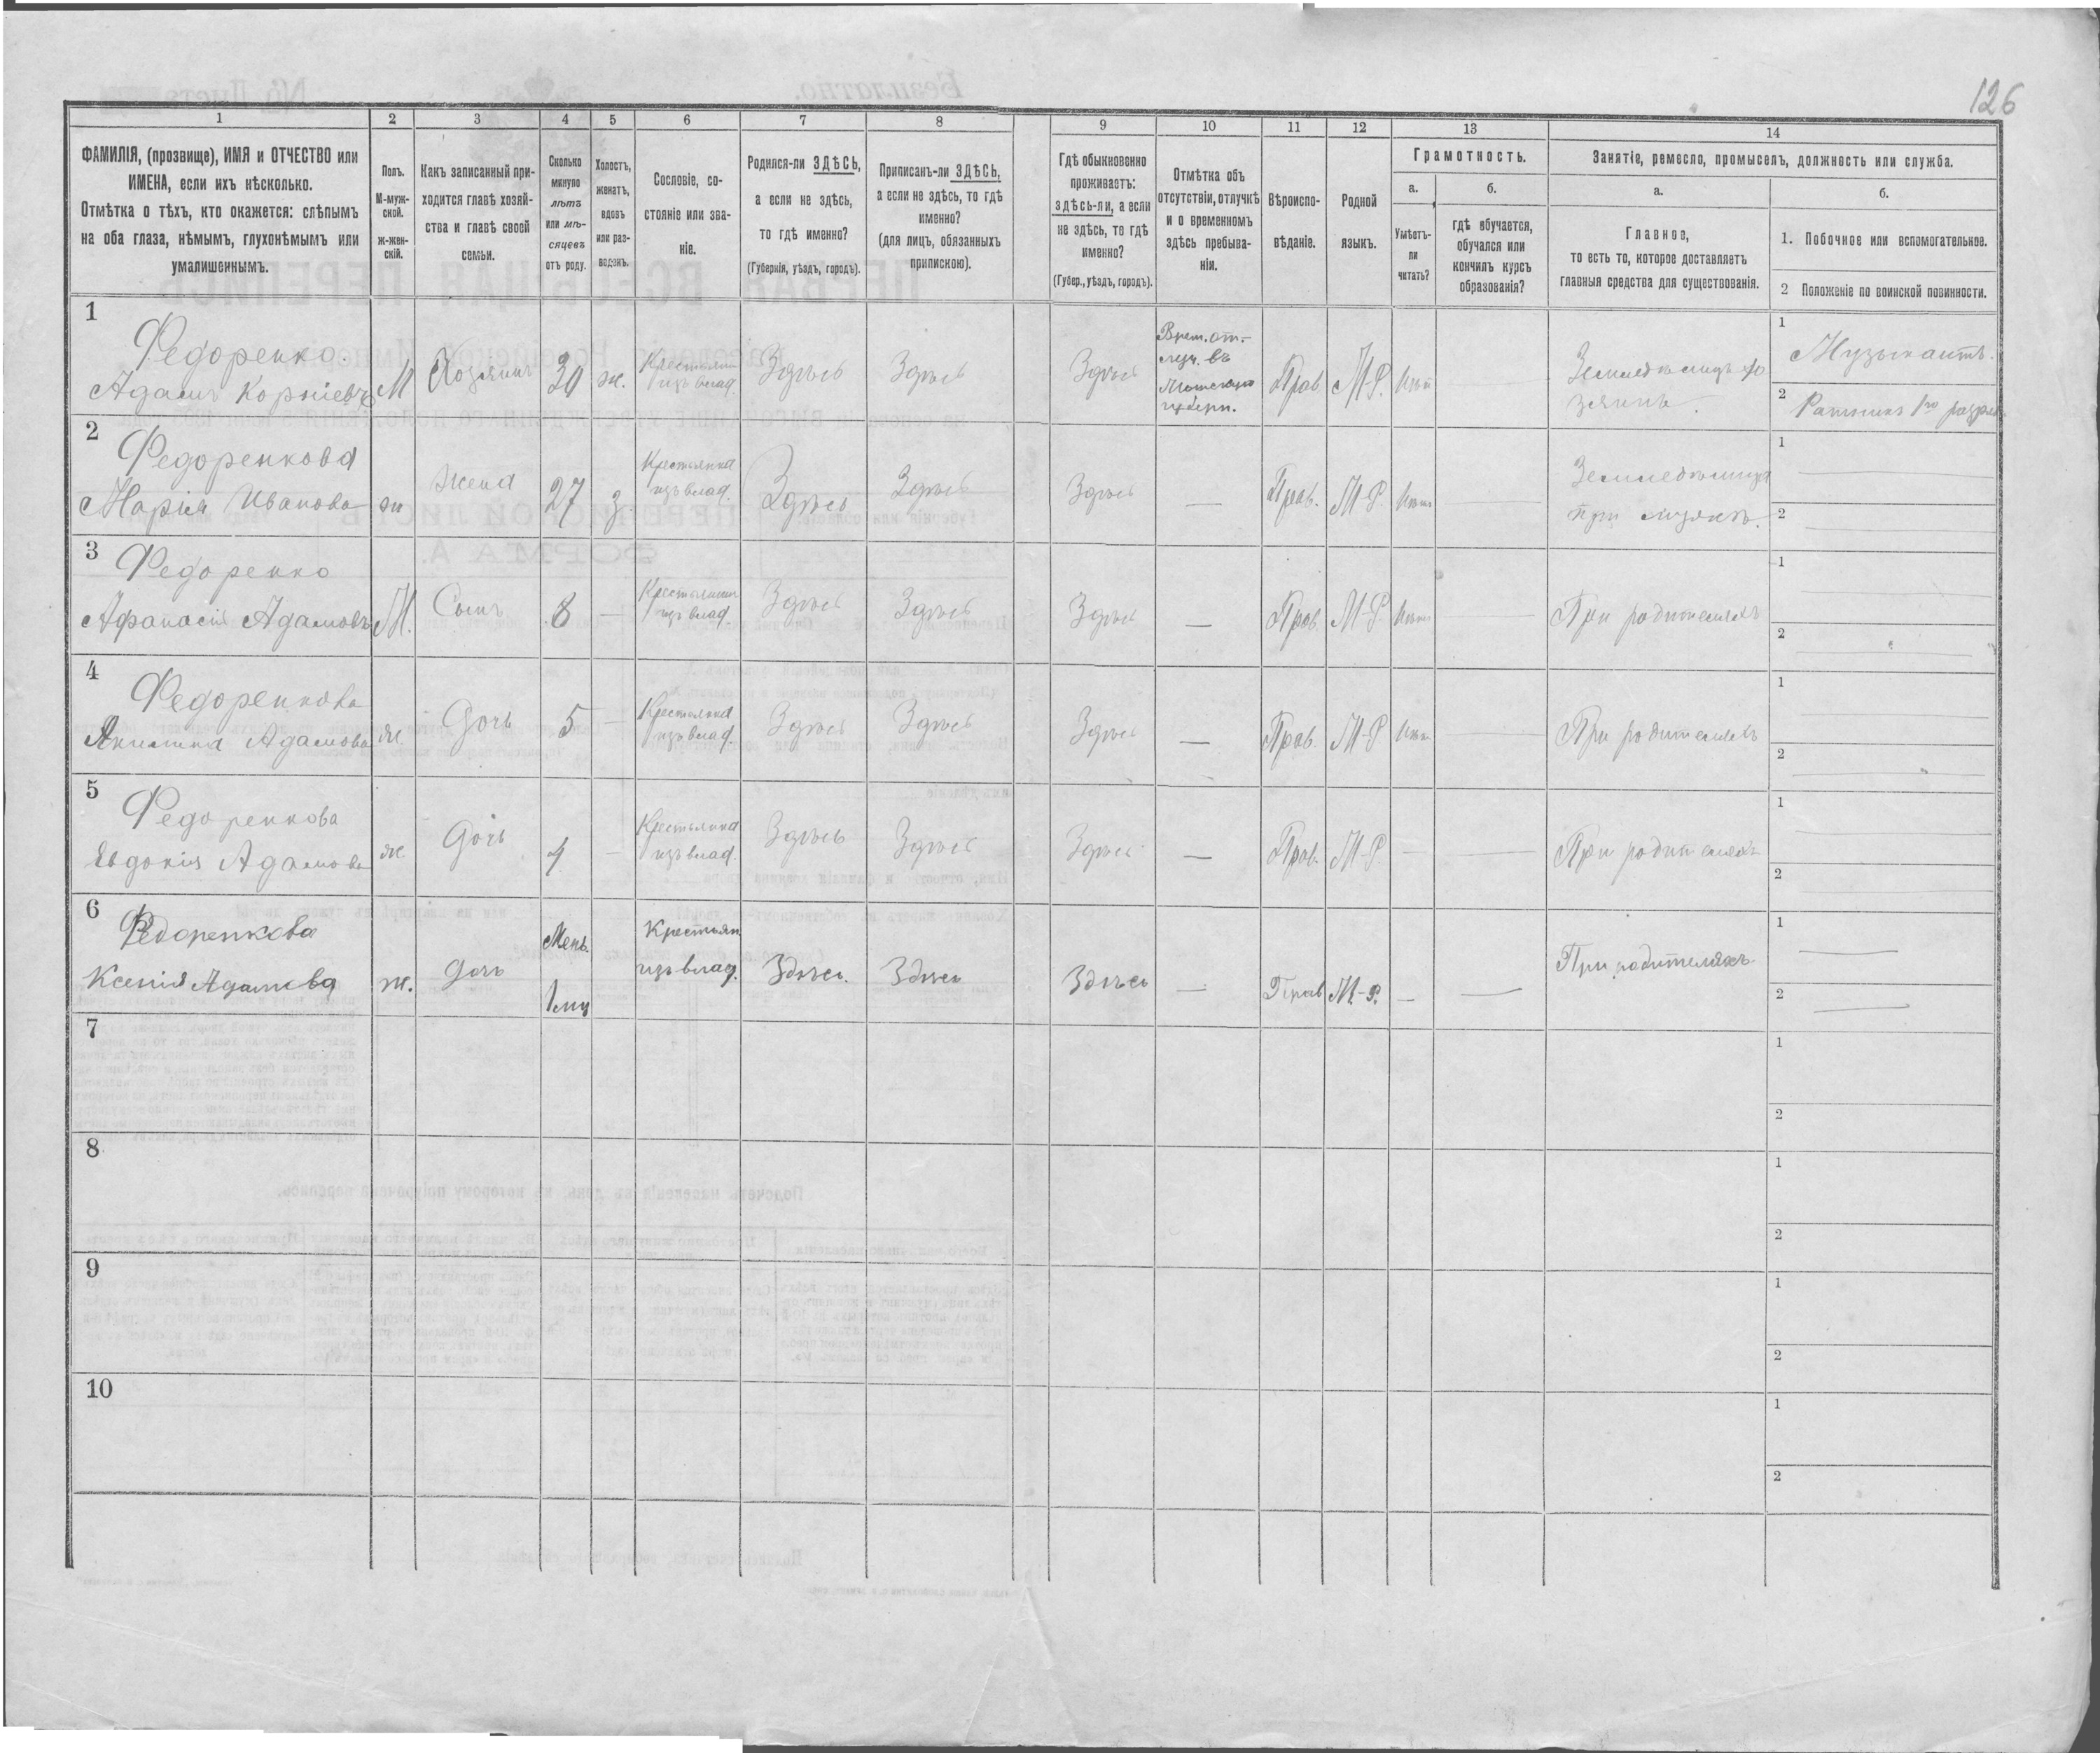 126
1 2 3 4 5 6 7 8 9 10 11 12 13 14
ФАМИЛІЯ, (прозвище), ИМЯ и ОТЧЕСТВО или
ИМЕНА, если ихъ нѣсколько.
Отмѣтка о тѣхъ, кто окажется: слѣпымъ
на оба глаза, нѣмымъ, глухонѣмымъ или
умалишеннымъ.
Полъ.
М-муж-
ской.
ж-жен-
скій.
Какъ записанный при-
ходится главѣ хозяй-
ства и главѣ своей
семьи.
Сколько
минуло
лѣтъ
или мѣ-
сяцевъ
отъ роду.
Холостъ,
женатъ,
вдовъ
или раз-
веденъ.
Сословіе, со-
стояніе или зва-
ніе.
Родился-ли ЗДѢСЬ,
а если не здѣсь,
то гдѣ именно?
(Губернія, уѣздъ, городъ).
Приписанъ-ли ЗДѢСЬ,
а если не здѣсь, то гдѣ
именно?
(для лицъ, обязанныхъ
припискою).
Гдѣ обыкновенно
проживаетъ:
здѣсь-ли, а если
не здѣсь, то гдѣ
именно?
(Губер., уѣздъ, городъ).
Отмѣтка объ
отсутствіи, отлучкѣ
и о временномъ
здѣсь пребыва-
ніи.
Вѣроиспо-
вѣданіе.
Родной
языкъ.
Грамотность.
а.
Умѣетъ-
ли
читать?
б.
гдѣ обучается,
обучался или
кончилъ курсъ
образованія?
Занятіе, ремесло, промыселъ, должность или служба.
а.
Главное,
то есть то, которое доставляетъ
главныя средства для существованія.
б.
1. Побочное или вспомогательное.
2 Положеніе по воинской повинности.
1
Федоренко.
Адамъ Корніевъ
М
Хозяинъ
30
ж.
Крестьянин
изъ влад.
Здѣсь
Здѣсь
Здѣсь
Врем. от-
луч. въ
губерн.
Прав
М-Р.
Нѣт
Земледѣлецъ хо
зяинъ.
1
Музыкантъ.
2
Ратникъ 1го разряд
2
Федоренкова
Марія Иванова
ж
Жена
27
з.
Крестьянка
изъ влад.
Здѣсь
Здѣсь
Здѣсь
—
Прав.
М-Р.
Нѣт
Земледѣлица
при мужѣ.
1
2
3
Федоренко
Афанасій Адамовъ
М.
Сынъ
8
—
Крестьянин
изъ влад.
Здѣсь
Здѣсь
Здѣсь
—
Прав.
М-Р.
Нѣт
При родителяхъ
1
2
4
Федоренкова
Акилина Адамова
ж.
Дочь
5
—
Крестьянка
изъ влад.
Здѣсь
Здѣсь
Здѣсь
—
Прав.
М-Р
Нѣт
При родителяхъ
1
2
5
Федоренкова
Евдокія Адамова
ж.
Дочь
4
—
Крестьянка
изъ влад.
Здѣсь
Здѣсь
Здѣсь
—
Прав.
М-Р
—
При родителяхъ
1
2
6
Федоренкова
Ксенія Адамова
ж.
Дочь
Мень.
1 мц
Крестьян
изъ влад.
Здѣсь.
Здѣсь
Здѣсь
—
Прав
М-Р.
—
При родителяхъ
1
2
7
1
2
8
1
2
9
1
2
10
1
2